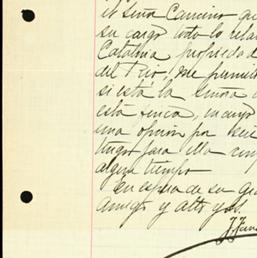 el Señor Cancino que
su cargo todo lo rela
Catalina propiedad
del Río, me permi
si está la Señora
esta finca, incuyo
una opinión por
tengo para ella
algun tiempo
En espera de su
amigo y atto y S.